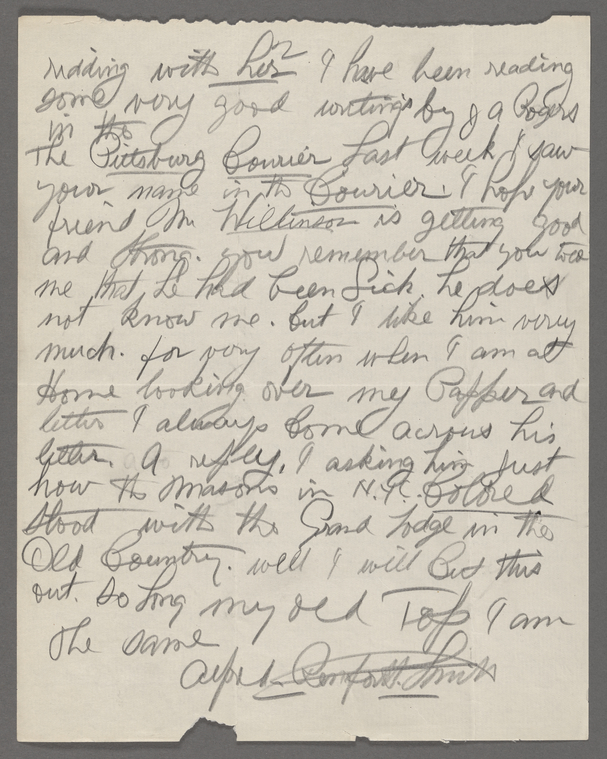 ridding with her I have been reading
some very good writings by J A Rogers
in the
the Pittsburg Courier Last week I saw
your name in th Courier. I hope your
friend Mr Wilkinson is getting good
and strong. your remember that you
me that he had been Sick. he does
not know me. but I like him verry
much. for very often when I am at
Home looking over my Papper and
letter I always Come across his
letter. A reply, I asking him Just
how the Masons in N.Y. Colored
stood with the Grand Lodge in the
Old Country. well I will Cut this
out. So long my old Top I am
the same
Alfred Smith